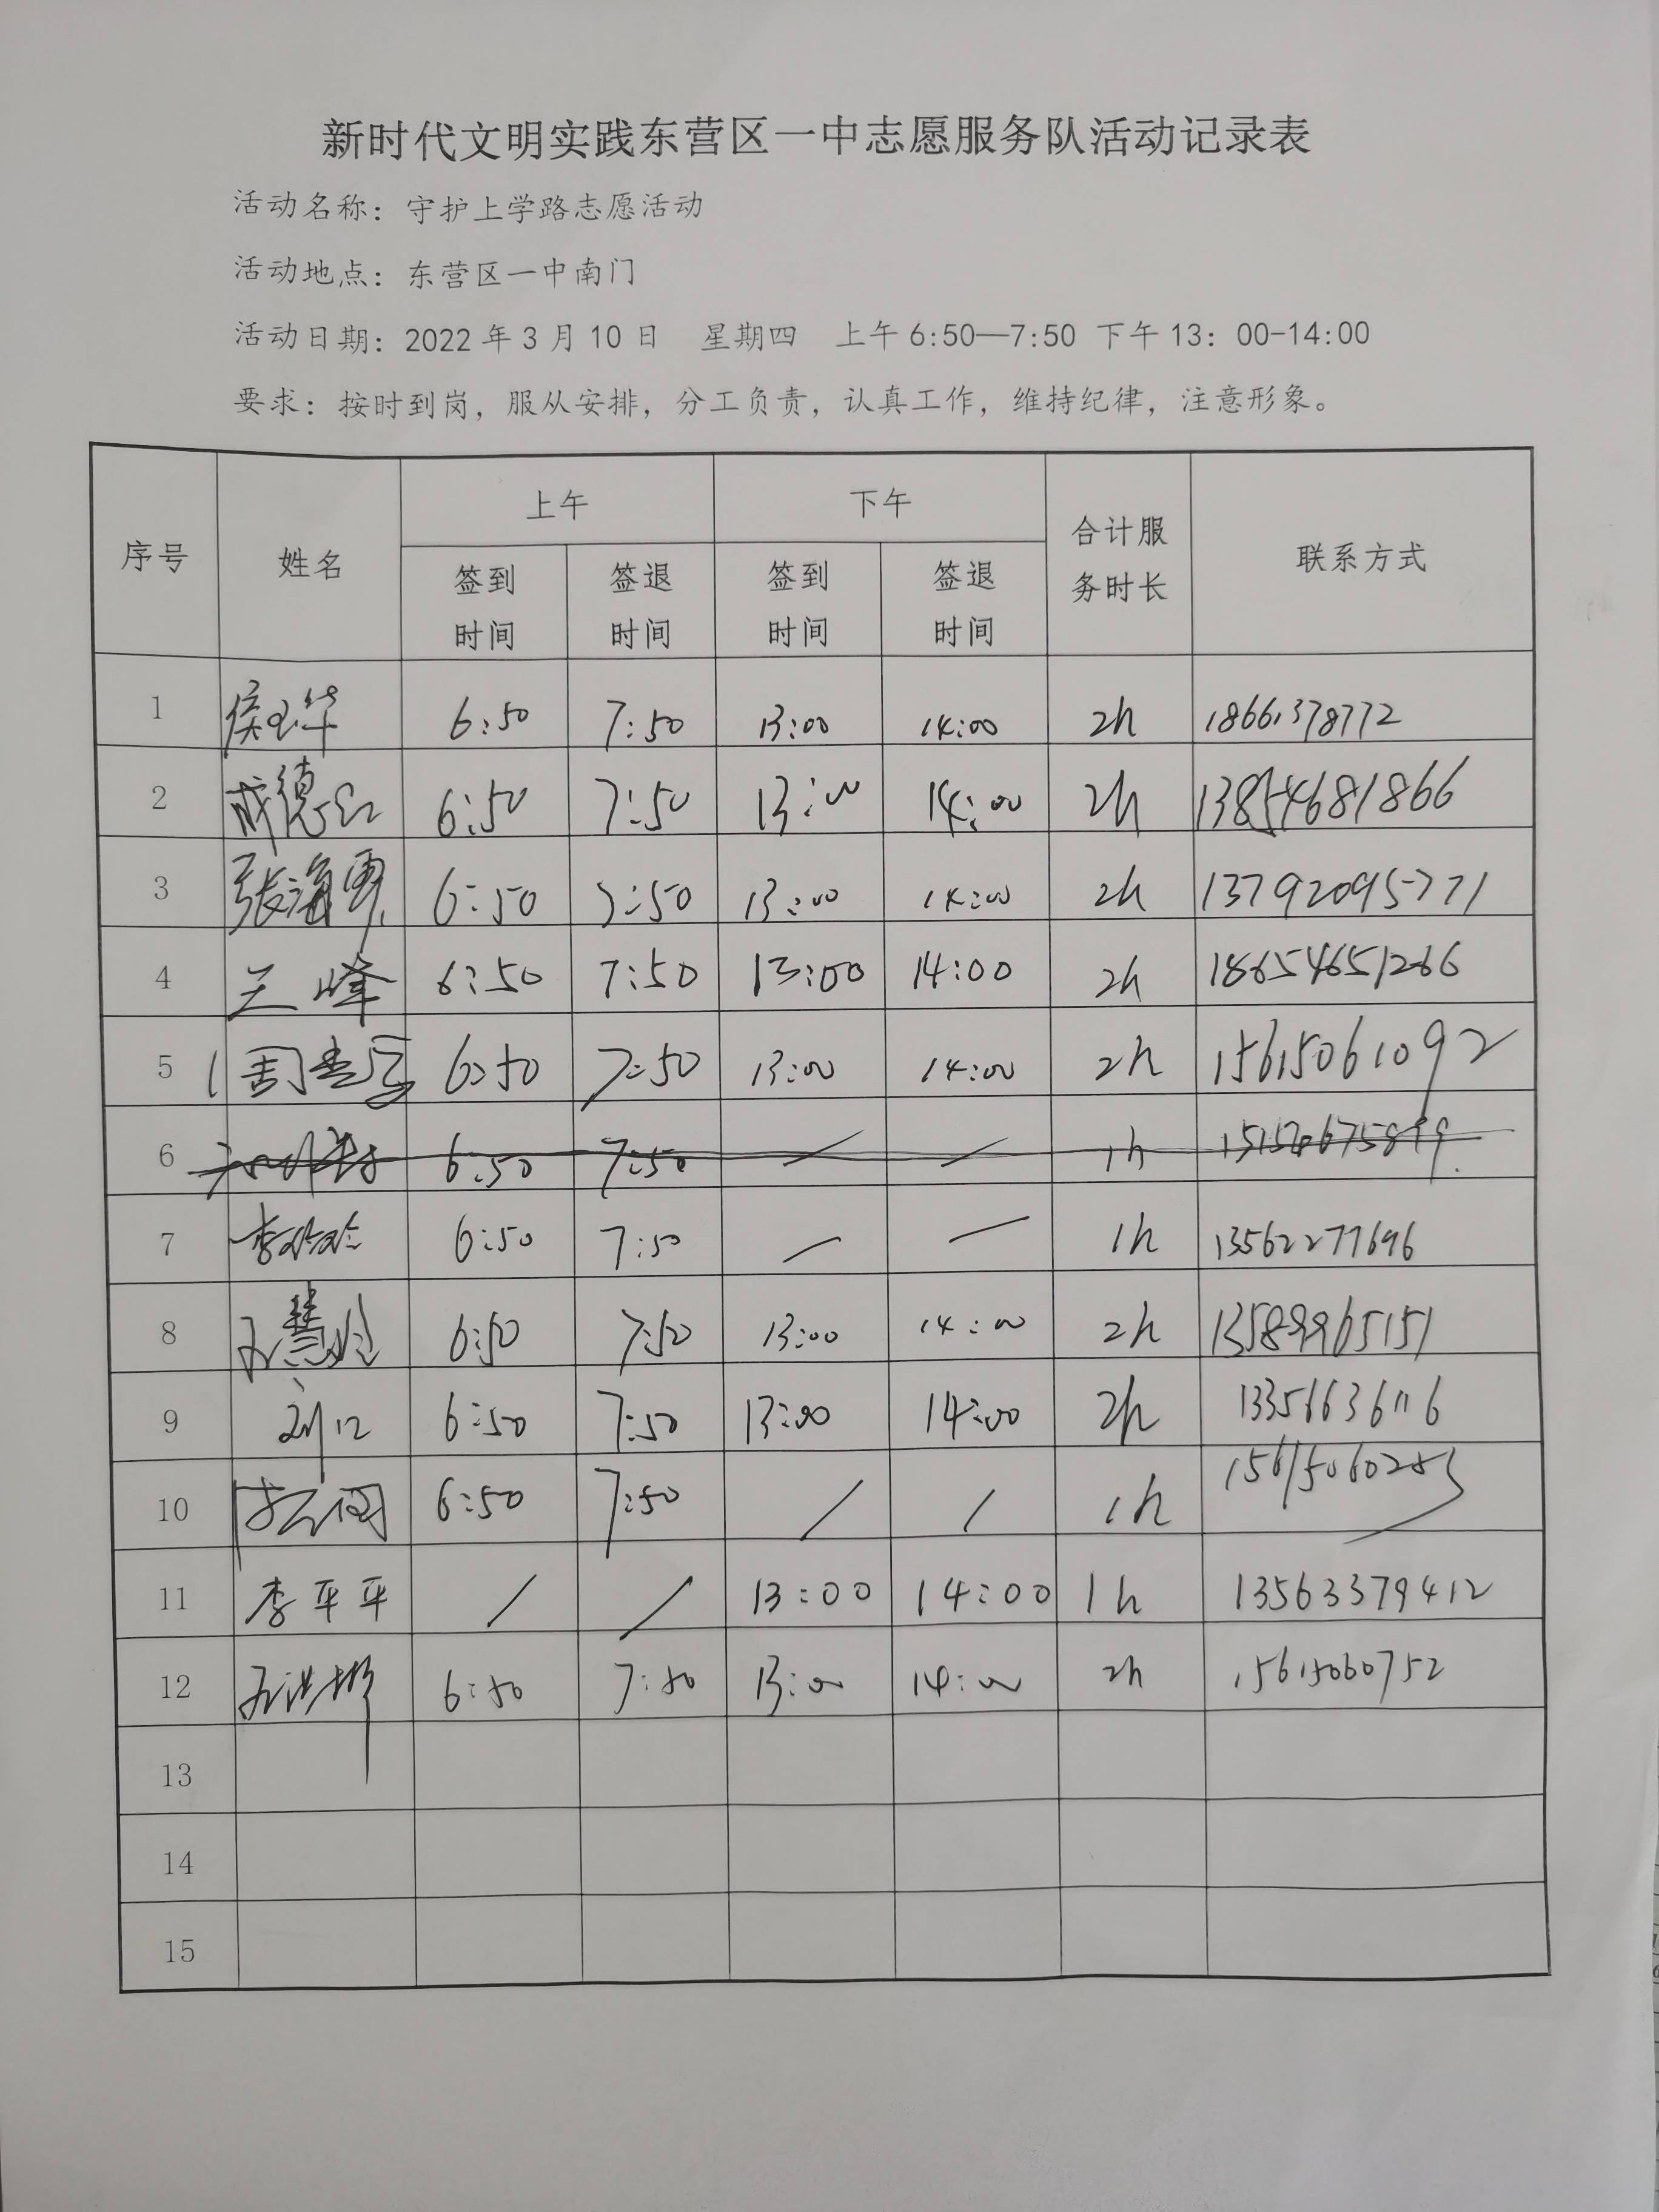 新时代文明实践东营区一中志愿服务队活动记录表
活动名称：守护上学路志愿活动
活动地点：东营区一中南门
活动日期：2022年3月10日 星期四 上午6:50—7:50 下午13：00-14:00
要求：按时到岗，服从安排，分工负责，认真工作，维持纪律，注意形象。
序号 姓名 上午 下午 合计服务时长 联系方式
签到时间 签退时间 签到时间 签退时间
1 侯玉华 6:50 7:50 13:00 14:00 2h 18661378772
2 成德红 6:50 7:50 13:00 14:00 2h 13854681866
3 张海军 6:50 7:50 13:00 14:00 2h 13792095771
4 兰峰 6:50 7:50 13:00 14:00 2h 18654651266
5 周 6:50 7:50 13:00 14:00 2h 15615061092
6 6:50 7:50 / / 1h
7 李玲玲 6:50 7:50 — — 1h 13562277696
8 王慧玲 6:50 7:50 13:00 14:00 2h 13589965151
9 刘江 6:50 7:50 13:00 14:00 2h 13356636116
10 6:50 7:50 / / 1h
11 李平平 / / 13:00 14:00 1h 13563379412
12 6:50 7:50 13:00 14:00 2h 15615060752
13
14
15